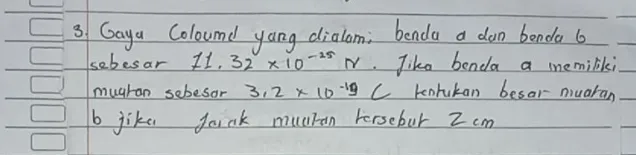 3. Gaya Coloumd yang dialami benda a dan benda b
sebesar 11,32 × 10⁻²⁵ N. Jika benda a memiliki
muatan sebesar 3,2 × 10⁻¹⁹ C tentukan besar muatan
b jika jarak muatan tersebut 2 cm